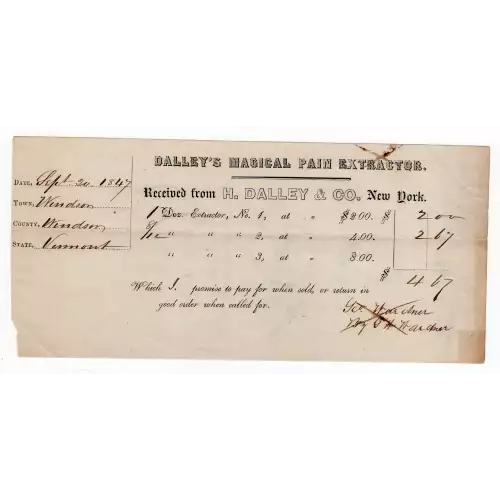 DALLEY'S MAGICAL PAIN EXTRACTOR.
DATE, Sept. 20 1847
TOWN, Windsor
COUNTY, Windsor
STATE, Vermont
Received from H. DALLEY & CO. New York.
1 Doz. Extractor, No. 1, at " $2.00. $ 2 00
8/12 " " 2, at " 4.00. 2 67
" " 3, at " 8.00.
$ 4 67
Which I promise to pay for when sold, or return in
good order when called for.
Geo. Wardner
By Wardner